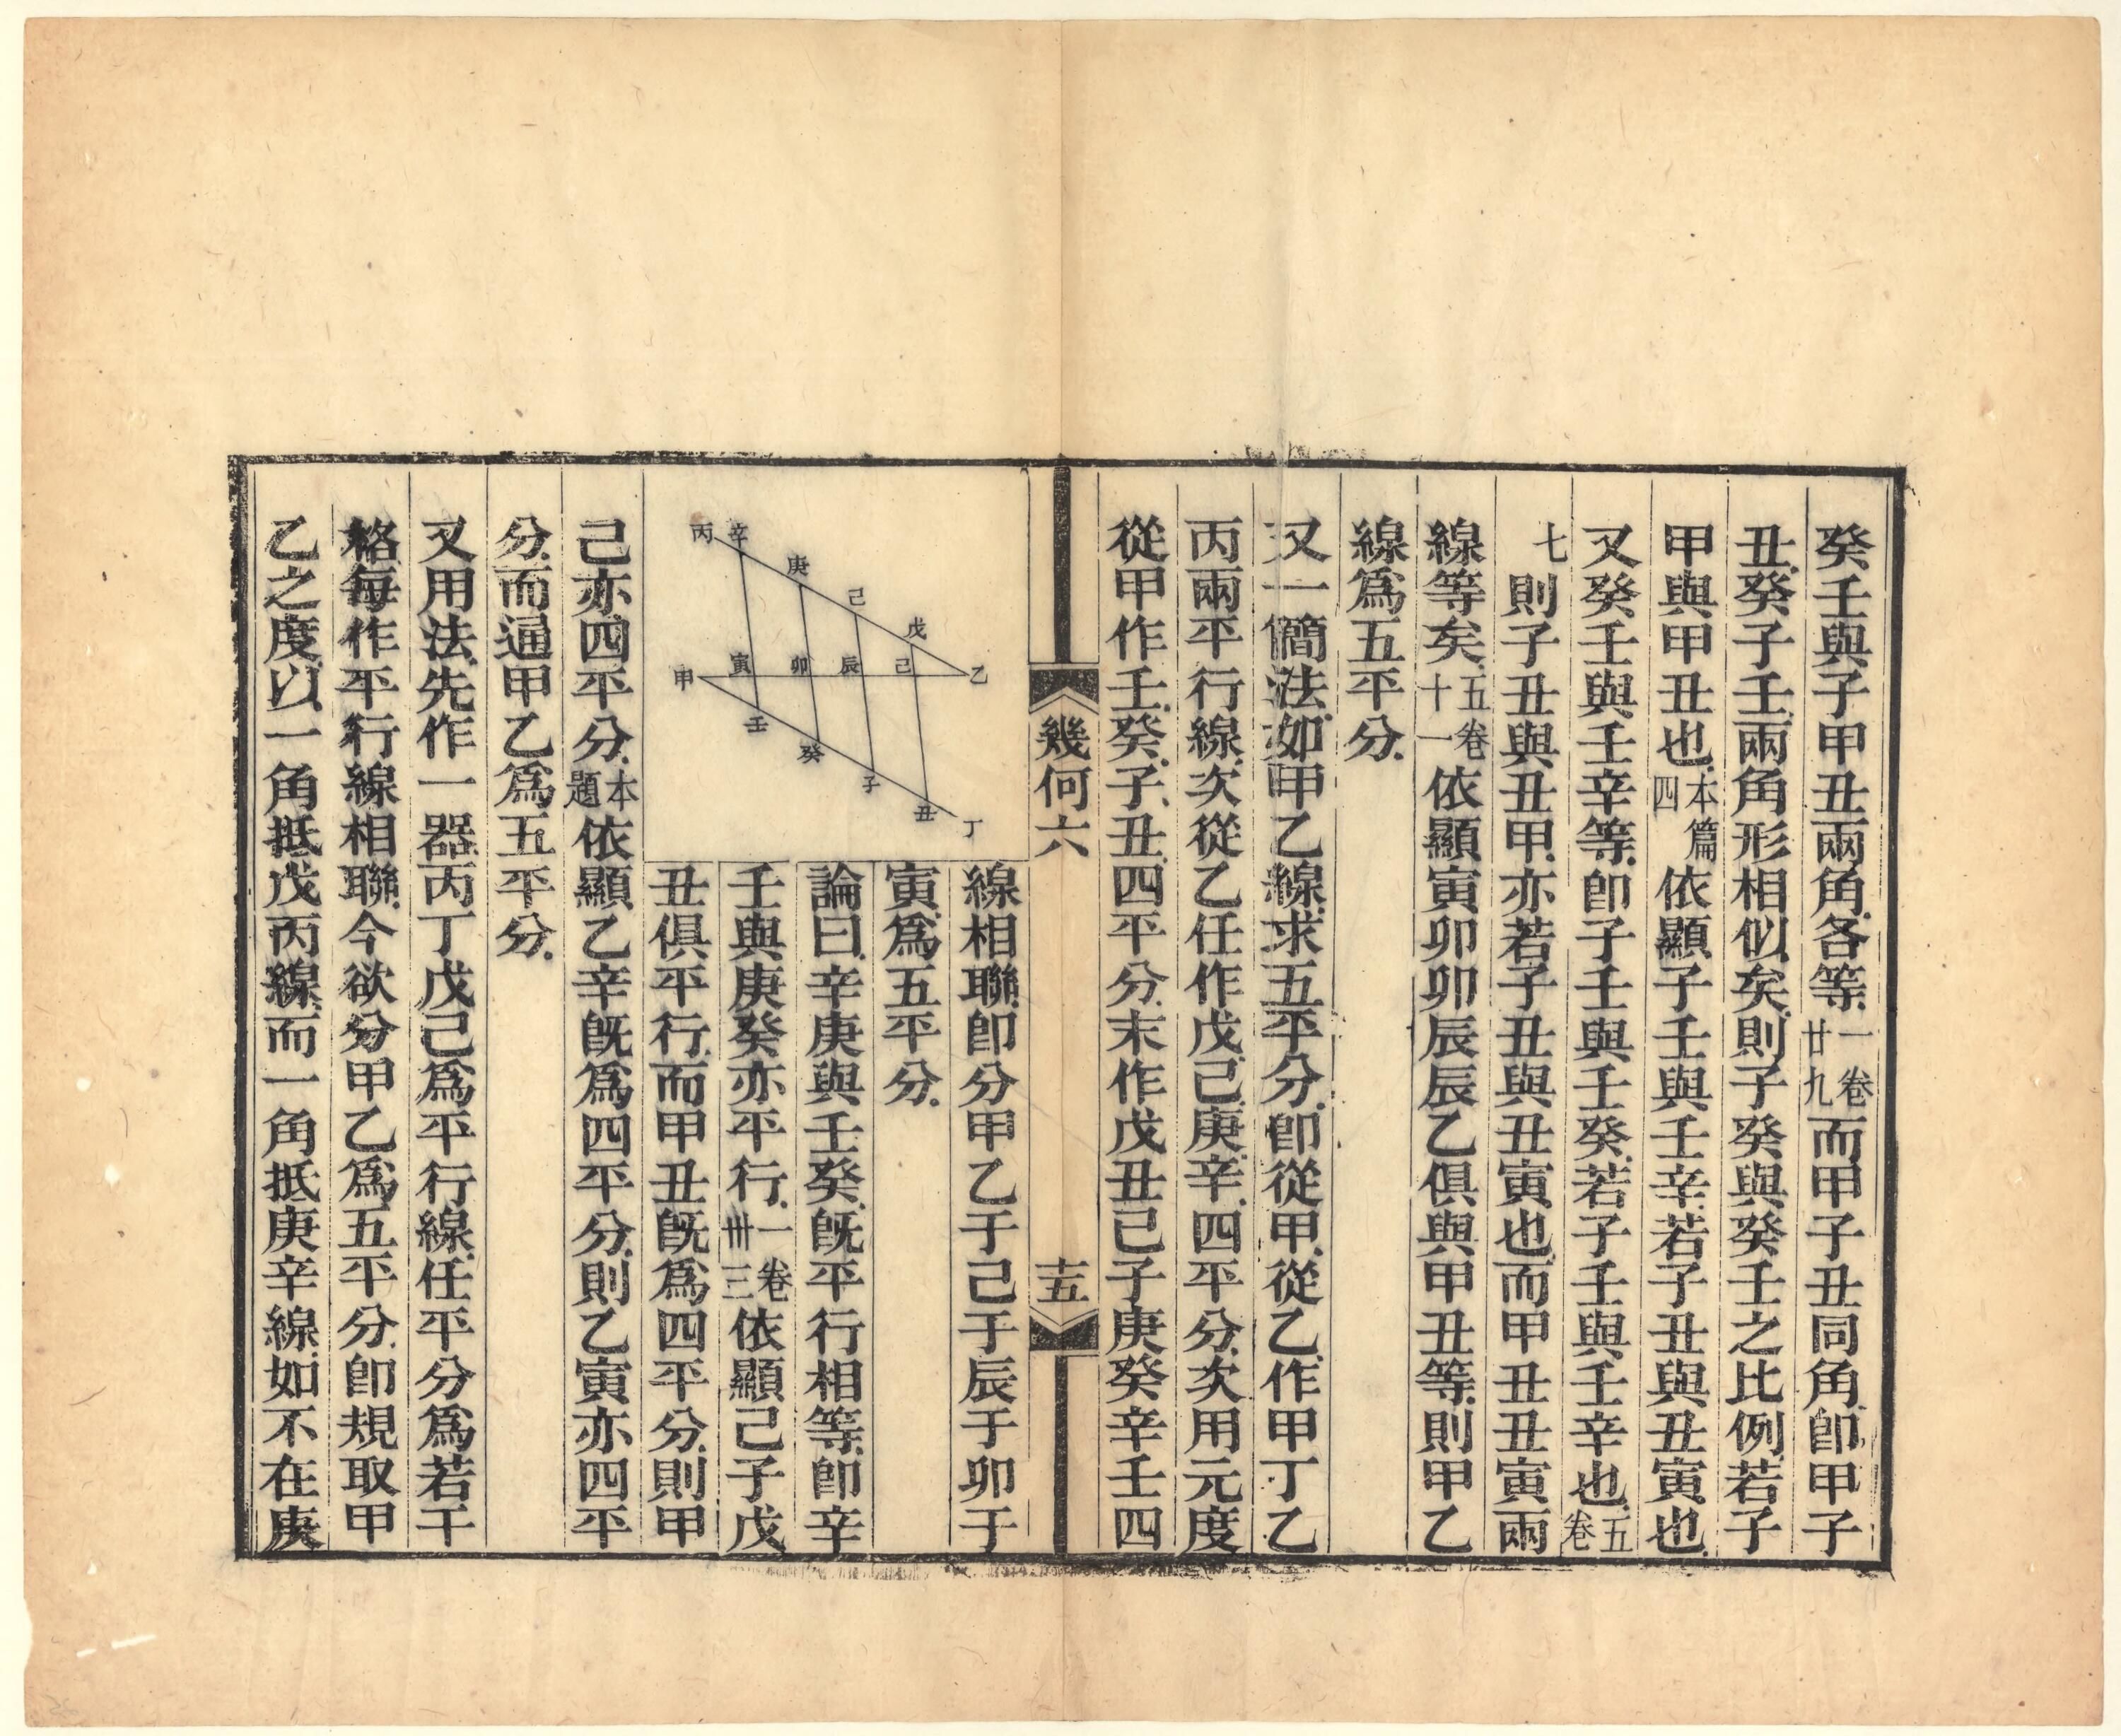 癸壬與子甲丑兩角各等一卷廿九而甲子丑同角卽甲子
丑癸子壬兩角形相似矣則子癸與癸壬之比例若子
甲與甲丑也本篇四依顯子壬與壬辛若子丑與丑寅也
又癸壬與壬辛等卽子壬與壬癸若子壬與壬辛也五卷
七則子丑與丑甲亦若子丑與丑寅也而甲丑丑寅兩
線等矣五卷十一依顯寅卯卯辰辰乙俱與甲丑等則甲乙
線爲五平分
又一簡法如甲乙線求五平分卽從甲從乙作甲丁乙
丙兩平行線次從乙任作戊己庚辛四平分次用元度
從甲作壬癸子丑四平分末作戊丑己子庚癸辛壬四
幾何六
十五
丙
辛
庚
己
戊
甲
寅
卯
辰
己
乙
壬
癸
子
丑
丁
線相聯卽分甲乙于己于辰于卯于
寅爲五平分
論曰辛庚與壬癸旣平行相等卽辛
壬與庚癸亦平行一卷卅三依顯己子戊
丑俱平行而甲丑旣爲四平分則甲
己亦四平分本題依顯乙辛旣爲四平分則乙寅亦四平
分而通甲乙爲五平分
又用法先作一器丙丁戊己爲平行線任平分爲若干
格每作平行線相聯今欲分甲乙爲五平分卽規取甲
乙之度以一角抵戊丙線而一角抵庚辛線如不在庚